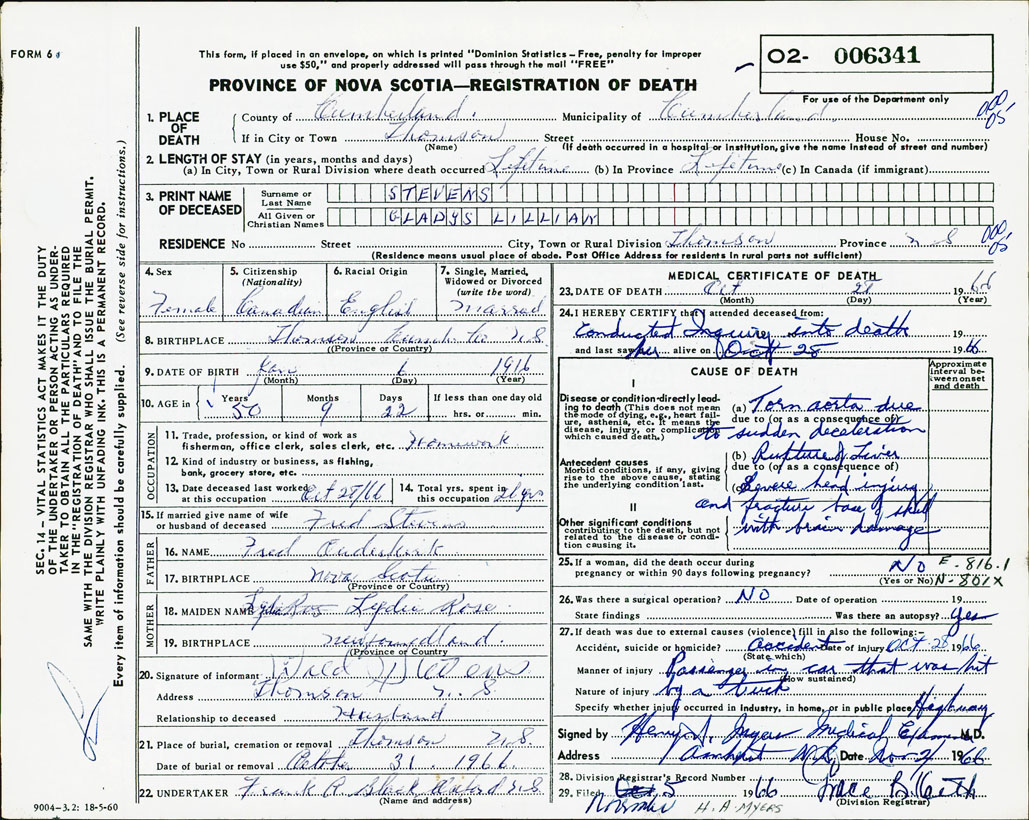 FORM 6
This form, if placed in an envelope, on which is printed "Dominion Statistics – Free, penalty for improper
use $50," and properly addressed will pass through the mail "FREE"
O2- 006341
PROVINCE OF NOVA SCOTIA—REGISTRATION OF DEATH
For use of the Department only
1. PLACE OF DEATH
County of Cumberland. Municipality of Cumberland.
000
05
If in City or Town Thomson Street House No.
(Name) (If death occurred in a hospital or institution, give the name instead of street and number)
2. LENGTH OF STAY (in years, months and days)
(a) In City, Town or Rural Division where death occurred Lifetime (b) In Province Lifetime (c) In Canada (if immigrant)
3. PRINT NAME OF DECEASED
Surname or Last Name STEVENS
All Given or Christian Names GLADYS LILLIAN
000
05
RESIDENCE No Street City, Town or Rural Division Thomson Province N S
(Residence means usual place of abode. Post Office Address for residents in rural parts not sufficient)
4. Sex
Female
5. Citizenship
(Nationality)
Canadian
6. Racial Origin
English
7. Single, Married,
Widowed or Divorced
(write the word)
Married
8. BIRTHPLACE Thomson Cumb. Co N.S.
(Province or Country)
9. DATE OF BIRTH Jan 6 1916
(Month) (Day) (Year)
10. AGE in Years Months Days If less than one day old
50 9 22 hrs. or min.
OCCUPATION
11. Trade, profession, or kind of work as
fisherman, office clerk, sales clerk, etc. Homework
12. Kind of industry or business, as fishing,
bank, grocery store, etc.
13. Date deceased last worked
at this occupation Oct 28/66
14. Total yrs. spent in
this occupation yrs
15. If married give name of wife
or husband of deceased Fred Stevens
FATHER
16. NAME Fred
17. BIRTHPLACE Nova Scotia
(Province or Country)
MOTHER
18. MAIDEN NAME Lydia Rose
19. BIRTHPLACE Newfoundland.
(Province or Country)
20. Signature of informant Stevens
Address Thomson N. S
Relationship to deceased Husband
21. Place of burial, cremation or removal Thomson N.S.
Date of burial or removal Octobe 31 1966
22. UNDERTAKER Frank R Black Oxford N.S
(Name and address)
MEDICAL CERTIFICATE OF DEATH
23. DATE OF DEATH Oct 28 1966
(Month) (Day) (Year)
24. I HEREBY CERTIFY that I attended deceased from:
Conducted Inquiry into death 19
and last saw her alive on Oct 28 1966
CAUSE OF DEATH
Approximate
interval be-
tween onset
and death
I
Disease or condition directly lead-
ing to death (This does not mean
the mode of dying, e.g., heart fail-
ure, asthenia, etc. It means the
disease, injury, or complication
which caused death.)
(a) Torn aorta due
due to (or as a consequence of)
to sudden deceleration
Antecedent causes
Morbid conditions, if any, giving
rise to the above cause, stating
the underlying condition last.
(b) Rupture of Liver
due to (or as a consequence of)
(c) Severe head injury
and fracture base of skull
with brain damage
II
Other significant conditions
contributing to the death, but not
related to the disease or condi-
tion causing it.
25. If a woman, did the death occur during
pregnancy or within 90 days following pregnancy? NO
(Yes or No)
E-816.1
N-801X
26. Was there a surgical operation? NO Date of operation 19
State findings Was there an autopsy? Yes
27. If death was due to external causes (violence) fill in also the following:–
Accident, suicide or homicide? accident Date of injury OCT 28 1966
(State which)
Manner of injury Passenger in car that was hit
(How sustained)
Nature of injury by a truck
Specify whether injury occurred in industry, in home, or in public place Highway
Signed by Henry A. Myers Medical Examiner M.D.
Address Amherst N.S. Date Nov 2/ 1966
28. Division Registrar's Record Number
29. Filed 5 1966 Grace B. Keith
November (Division Registrar)
H. A. MYERS
SEC. 14 – VITAL STATISTICS ACT MAKES IT THE DUTY
OF THE UNDERTAKER OR PERSON ACTING AS UNDER-
TAKER TO OBTAIN ALL THE PARTICULARS REQUIRED
IN THE "REGISTRATION OF DEATH" AND TO FILE THE
SAME WITH THE DIVISION REGISTRAR WHO SHALL ISSUE THE BURIAL PERMIT.
WRITE PLAINLY WITH UNFADING INK. THIS IS A PERMANENT RECORD.
Every item of information should be carefully supplied. (See reverse side for instructions.)
9004-3.2: 18-5-60